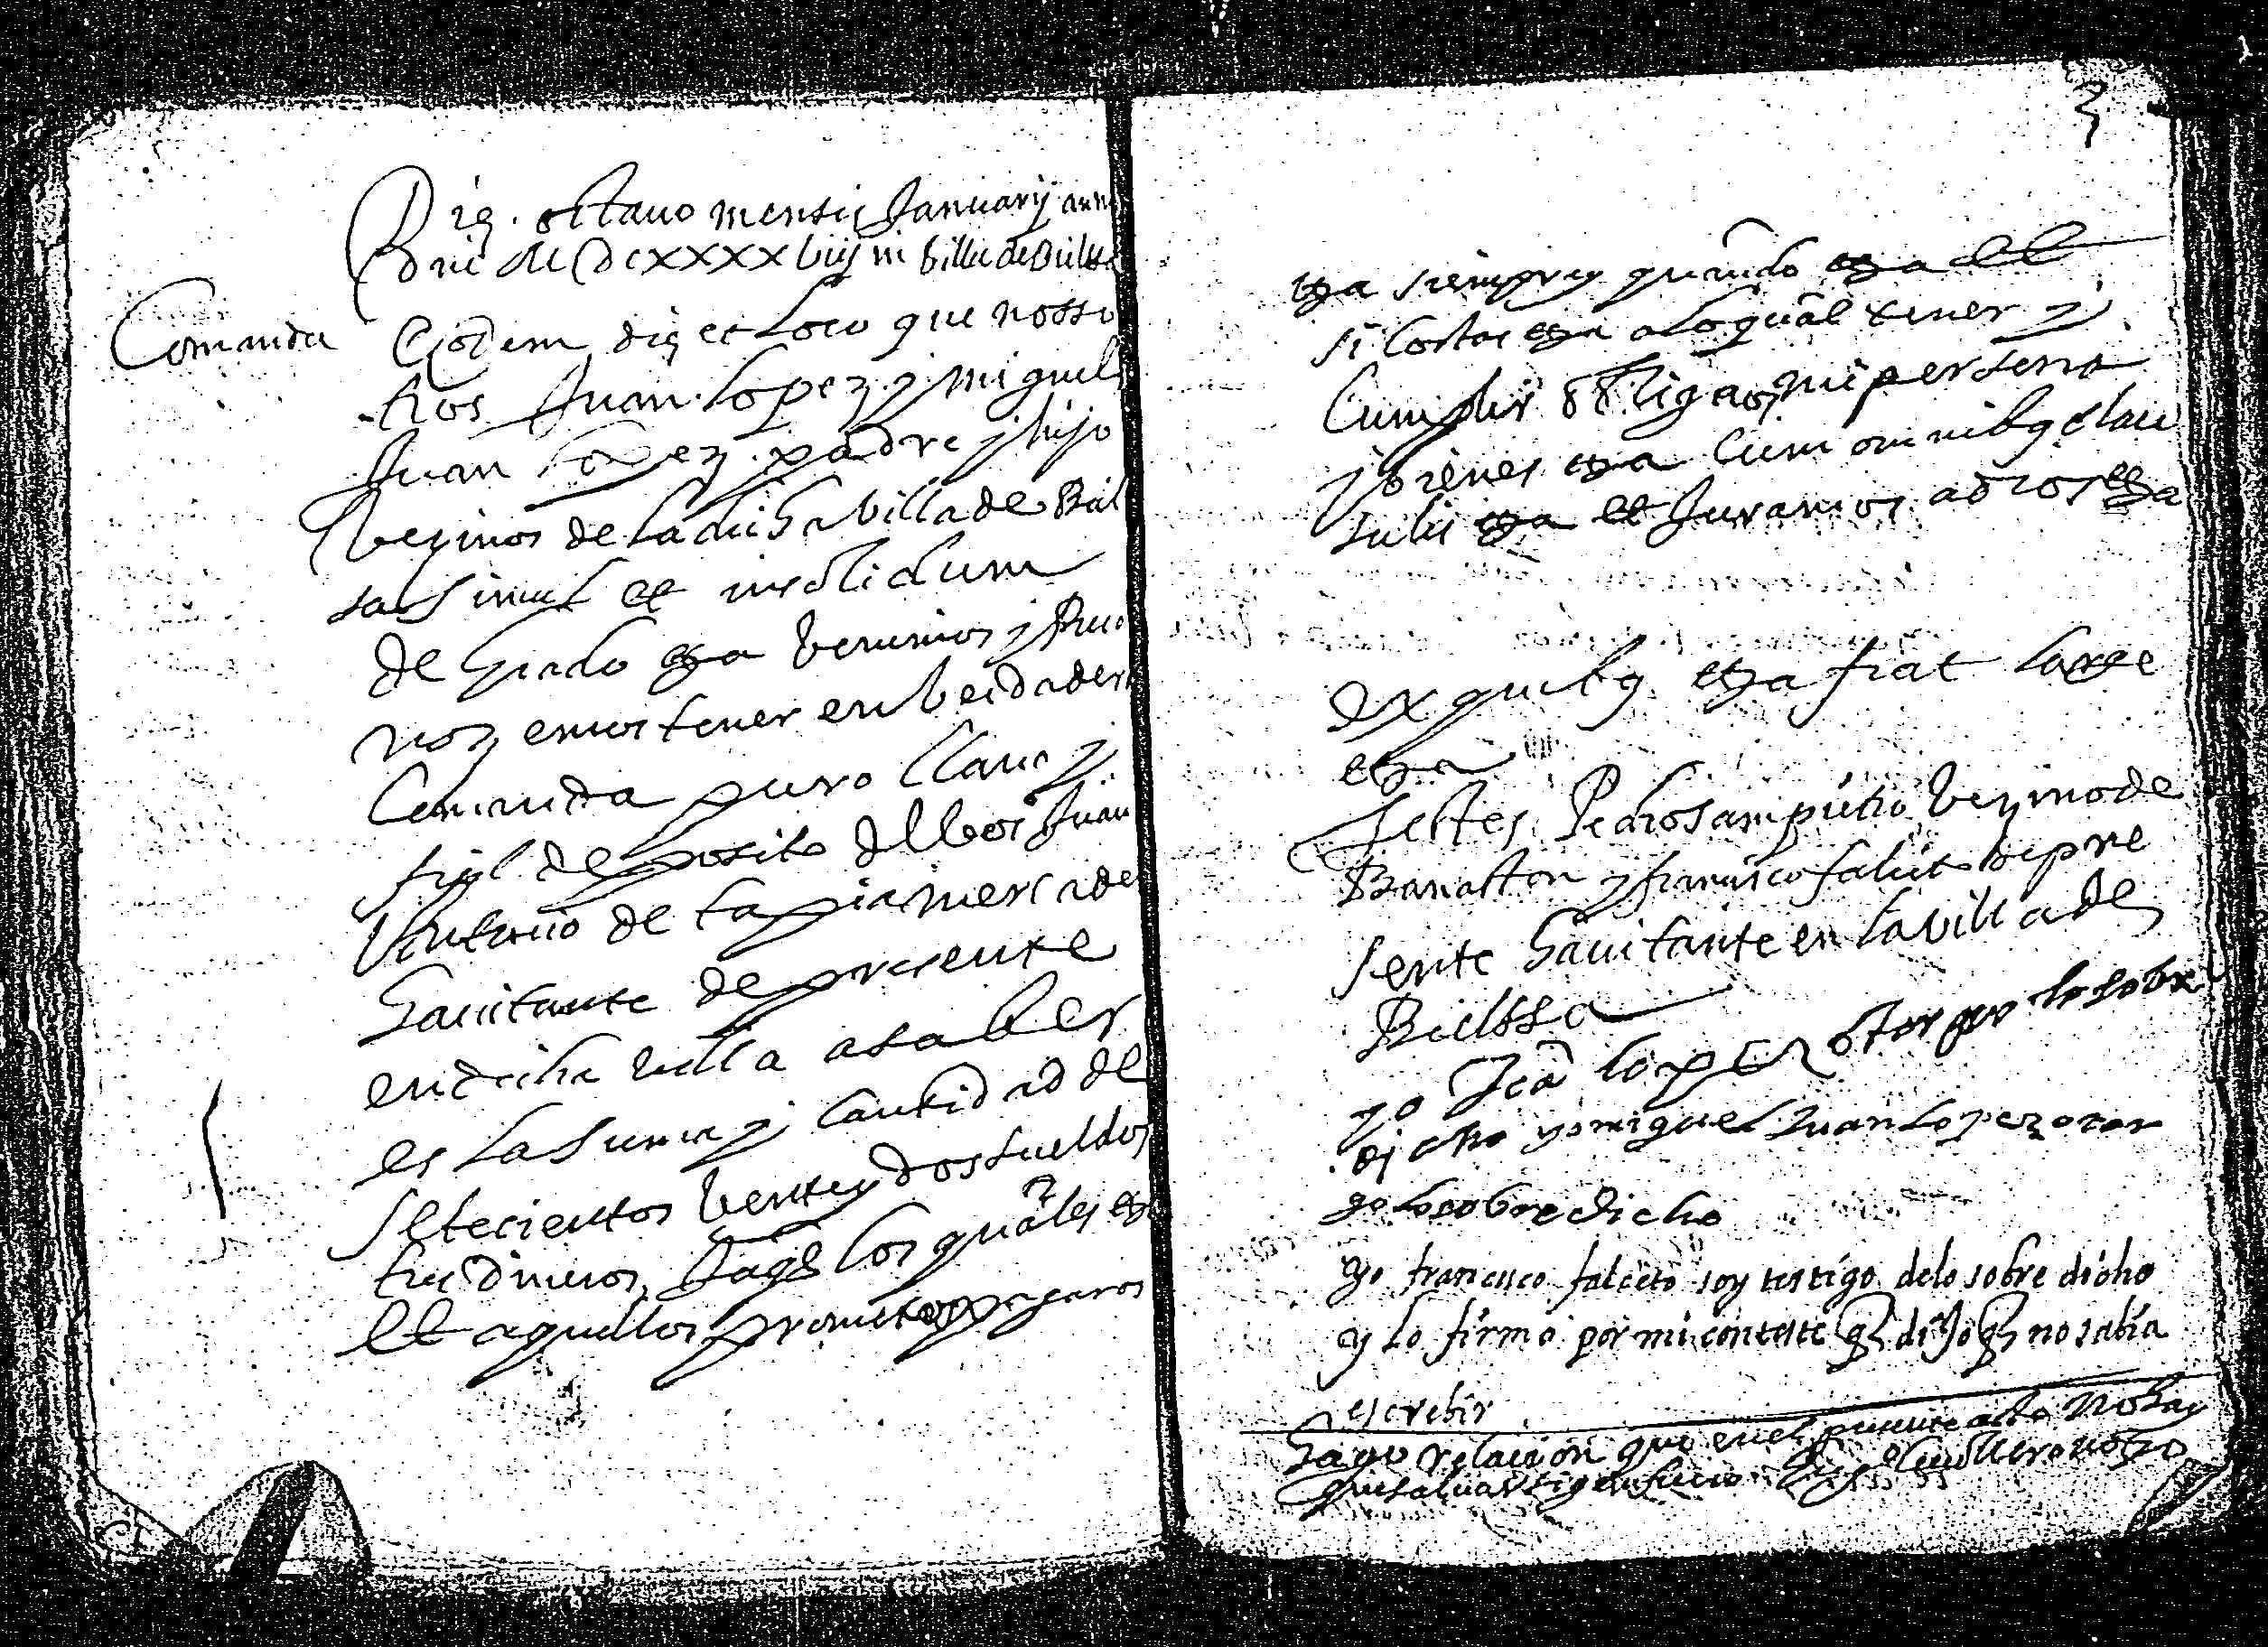 Die octauo mensis Januarij anno
Dni MDCxxxxbiij in billa de Bielssa
Comanda
Eiodem die et loco que nosso
tros Juan Lopez y Miguel
Juan Lopez padre y hijo
bezinos de la dicha billa de Biel
sa simul et insolidum
de grado etza benimos y Reco
nozemos tener en berdadera
Comanda puro llano y
fiel deposito de bos Juan
de tapia mercader
hauitante de presente
en dicha villa a saber
es la suma y cantidad de
setecientos bente y dos sueldos
dineros Jaqs los quales etz
et aquellos prometemos pagaros
3
etza siempre y quando etza et
si costas etza a lo qual tener y
Cumplir obligamos mi persona
y bienes etza Cum omnibq clau
sulis etza et Juramos a dios etza
Ex quibq etza fiat large
etza
Testes Pedro Sampietro bezino de
Banaston y francisco falceto de pre
sente hauitante en la villa de
Bielssa
yo Jua lopez otorgo lo sobre
dicho yo miguel Juan Lopez otor
go lo sobre dicho
yo francisco falceto soy testigo de lo sobre dicho
y lo firmo por mi conteste q dijo q no sabia
escrebir
hago relacion que en el presente acto no hay
que saluar notro